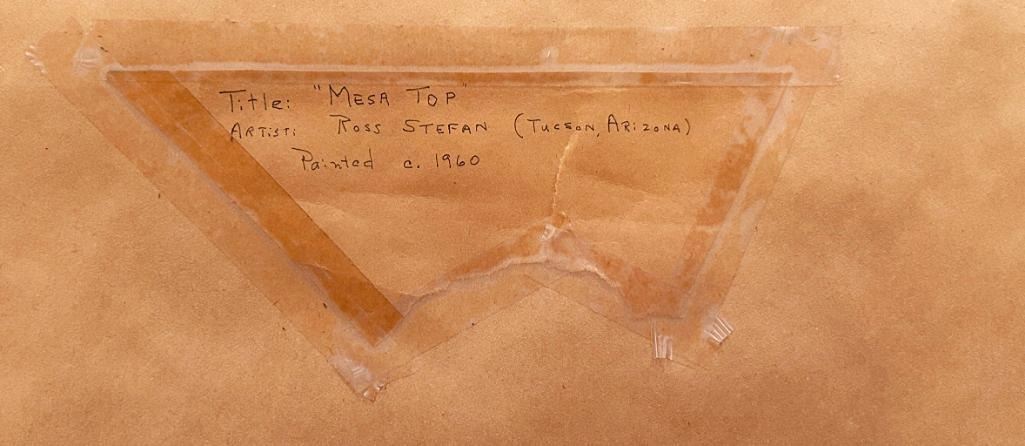 Title: "MESA TOP"
ARTIST: ROSS STEFAN (TUCSON, ARIZONA)
Painted c. 1960